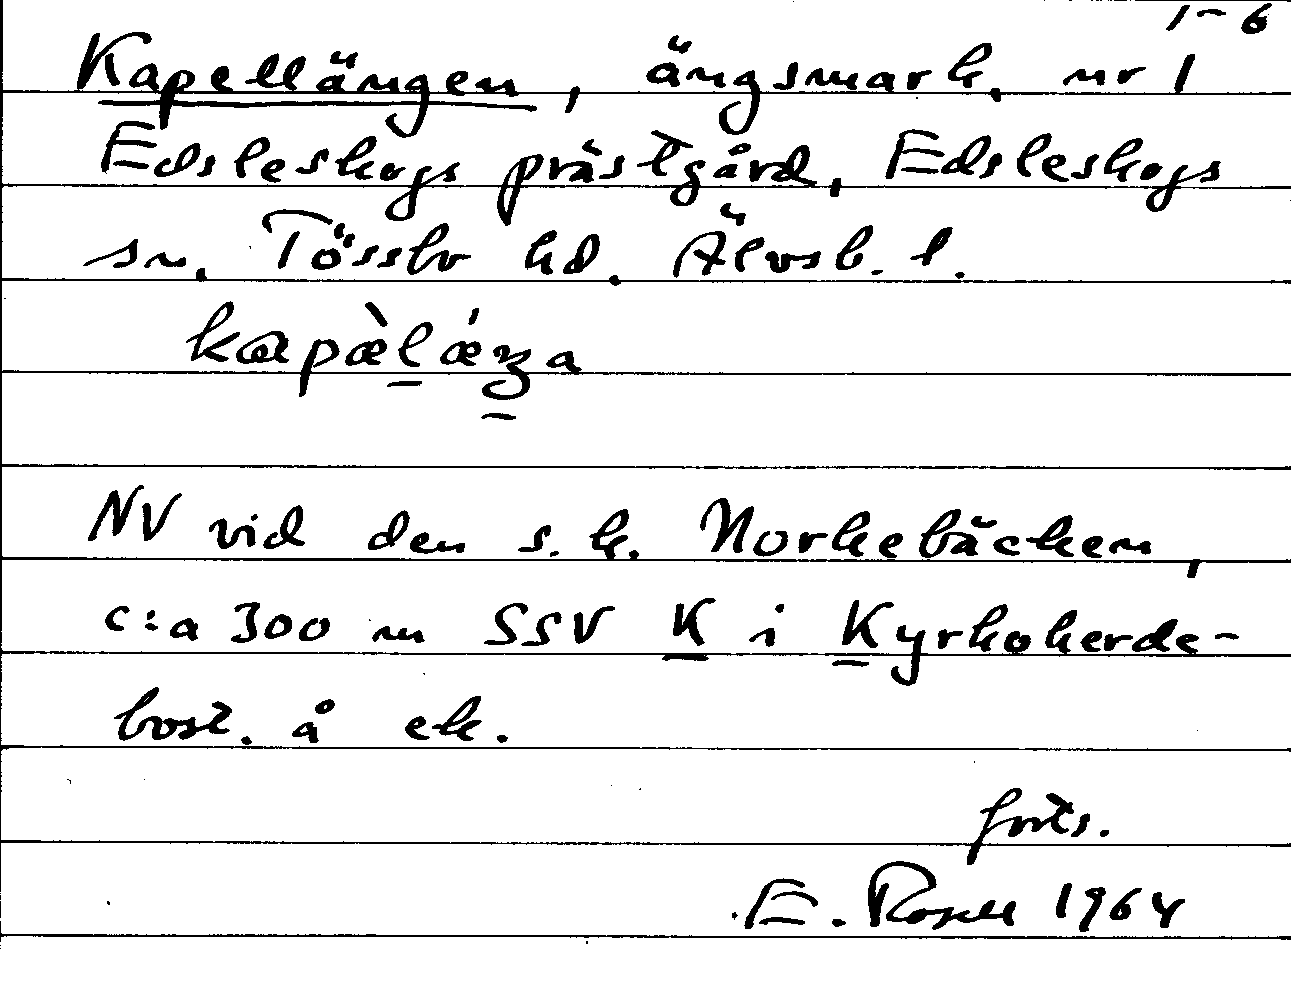 1-6
Kapellängen, ängsmark, nr 1
Edsleskogs prästgård, Edsleskogs
sn, Tössbo hd. Älvsb. l.
NV vid den s.k. Norkebäcken,
c:a 300 m SSV K i Kyrkoherde-
bost. å ek.
forts.
E. Rosell 1964